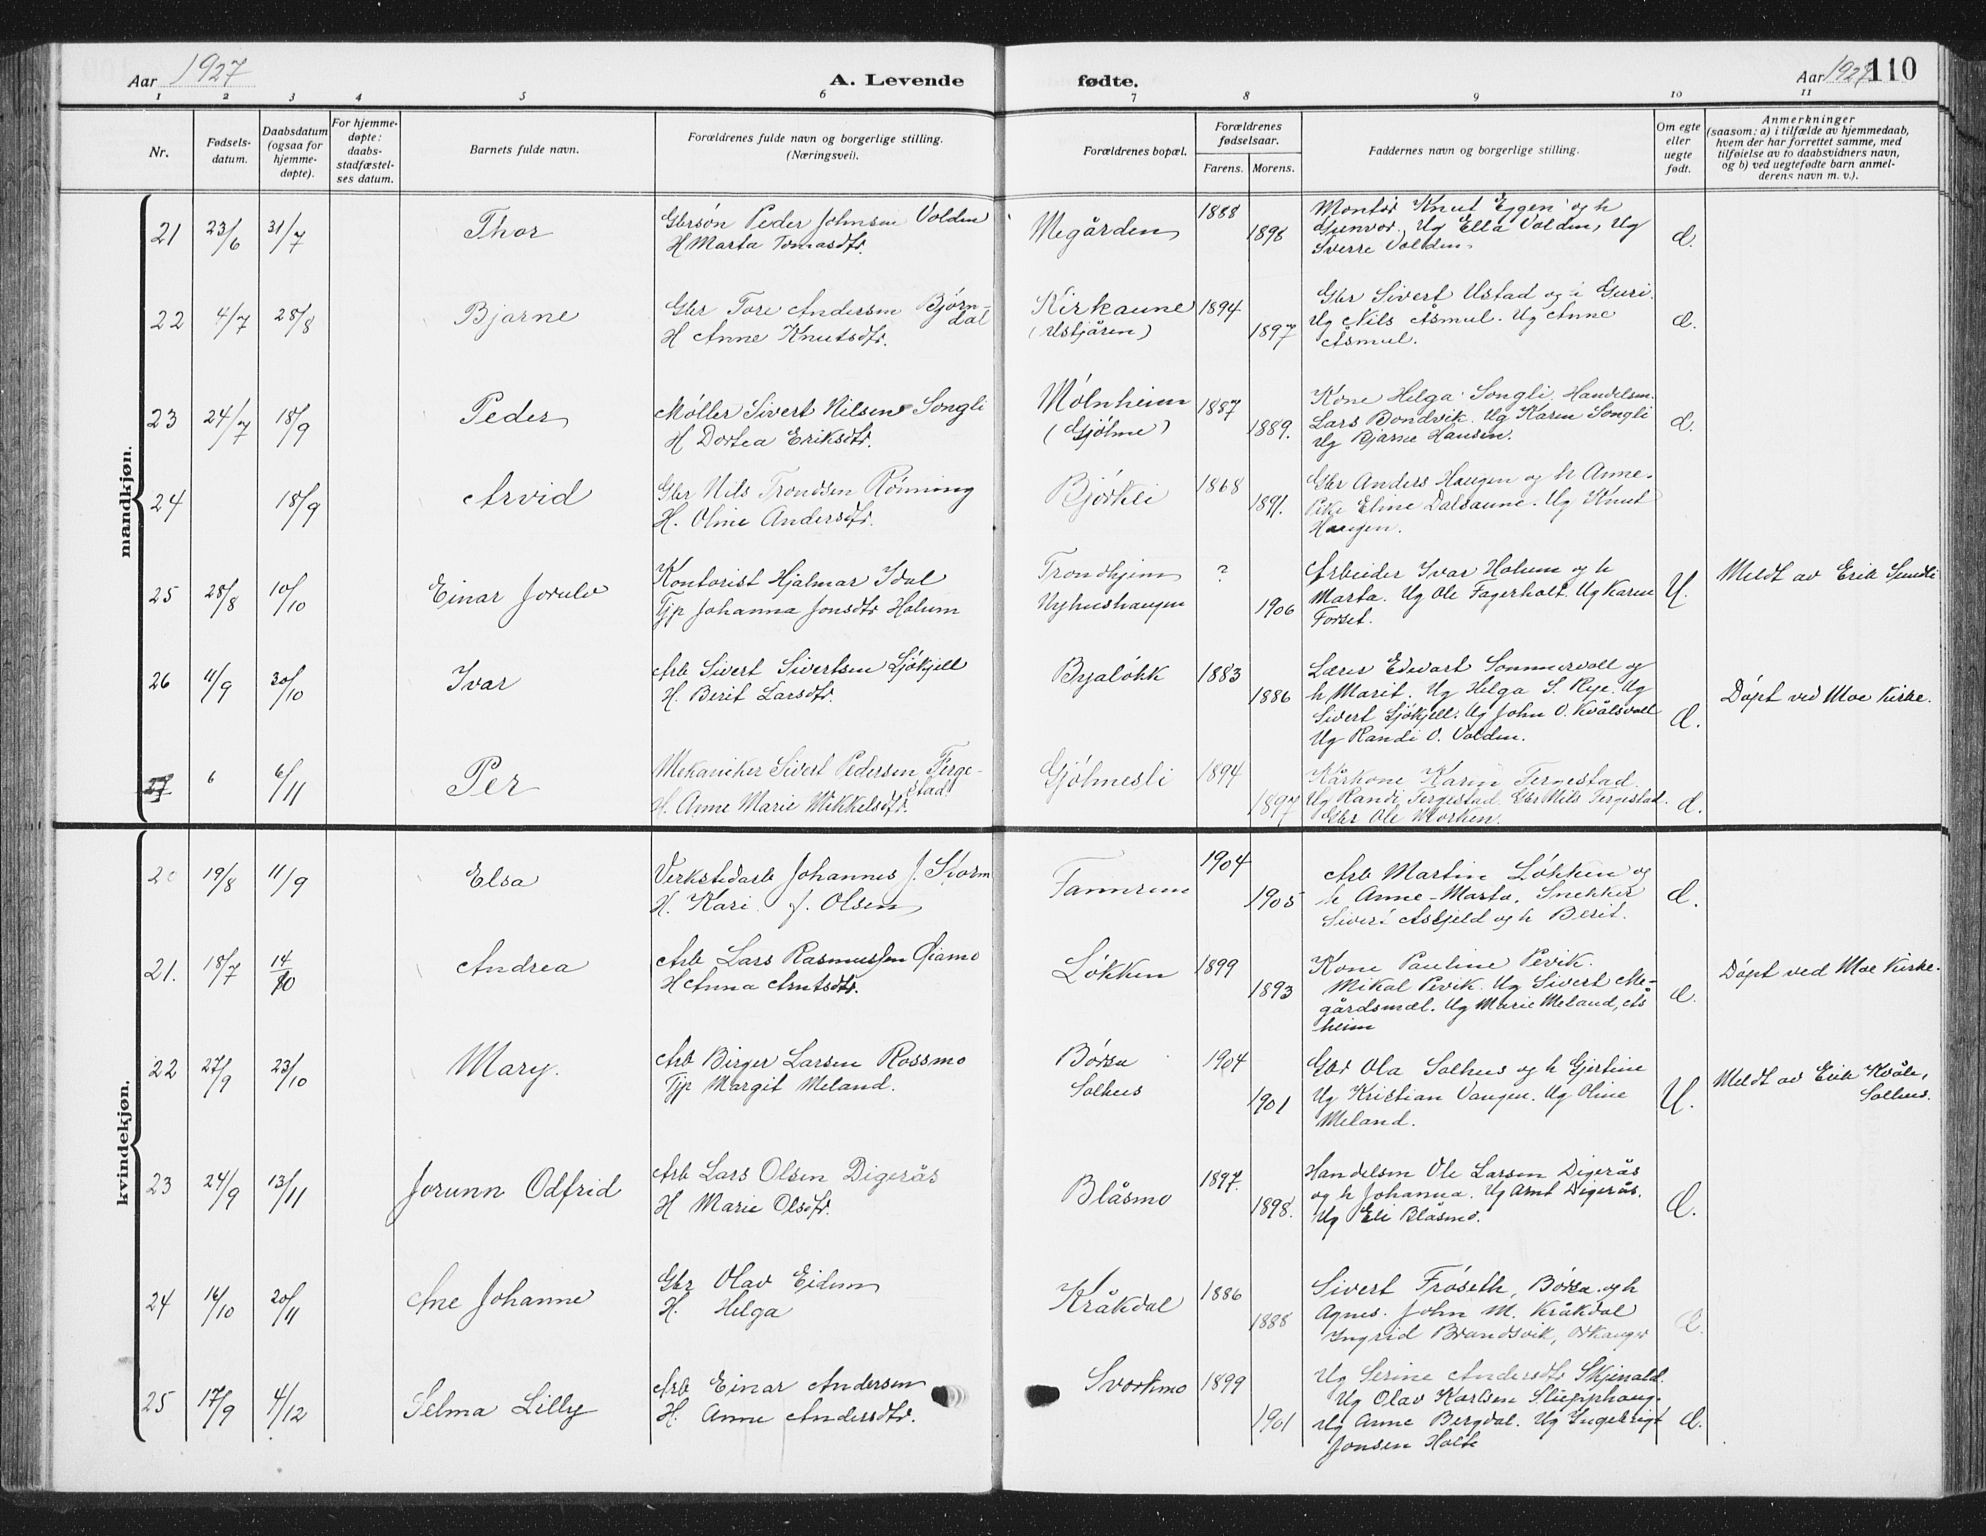 Aar 1927
A. Levende
fødte.
Aar 1927
110
1 2 3 4 5 6 7 8 9 10 11
Nr.
Fødsels-
datum.
Daabsdatum
(ogsaa for
hjemme-
døpte).
For hjemme-
døpte:
daabs-
stadfæstel-
ses datum.
Barnets fulde navn.
Forældrenes fulde navn og borgerlige stilling.
(Næringsvei).
Forældrenes bopæl.
Forældrenes
fødselsaar.
Farens. Morens.
Faddernes navn og borgerlige stilling.
Om egte
eller
uegte
født.
Anmerkninger
(saasom: a) i tilfælde av hjemmedaab,
hvem der har forrettet samme, med
tilføielse av to daabsvidners navn,
og b) ved uegtefødte barn anmel-
derens navn m. v.).
mandkjøn.
21 23/6 31/7 Thor
Gbrsøn Peder Johnsen Volden
H Marta Tomasdtr.
Megården
1888
1898
Montør Knut Eggen og h
Gunvor, Ug Ella Volden, Ug
Sverre Volden.
Æ.
22 4/7 28/8 Bjarne
Gbr Tore Andersen Bjørn-
dal
H Anne Knutsdtr.
Kirkaune
(Ustjåren)
1894
1897
Gbr Sivert Ustad og i Guri.
Ug Nils Åsmul. Ug Anne
Åsmul.
Æ.
23 24/7 18/9 Peder
Møller Sivert Nilsen Songli
H Dortea Eriksdtr.
Mólnheim
(Gjólme)
1887
1889.
Kone Helga Songli, Handelsm.
Lars Bondvik. Ug Karen Songli
Ug Bjarne Hansen.
Æ.
24 18/9 Arvid
Gbr Nils Trondsen Rónning
H. Oline Andersdtr.
Bjórkli
1868
1891.
Gbr Anders Haugen og h Anne.
Pike Eline Dalsaune. Ug Knut
Haugen.
25 28/8 10/10 Einar Jorulv
Kontorist Hjalmar Idal
Tjp Johanna Jonsdtr Holum
Trondhjem
Nyhushaugen
?
1906
Arbeider Ivar Holum og h
Marta. Ug Ole Fagerholt. Ug Karen
Forset.
U.
Meldt av Erik Sundli
26 11/9 30/10 Ivar
Arb Sivert Sivertsen Ljókjell
H. Berit Larsdtr.
Byalókk
1883
1886
Lærer Edvart Sommervoll og
h Marit. Ug Helga S. Rye. Ug
Sivert Ljókjell. Ug John O. Kvålsvoll
Ug Randi O. Volden.
Æ.
Dópt ved Moe Kirke.
27 6 6/11 Per
Mekaniker Sivert Pedersen Ferge-
stad
H. Anne Marie Mikkelsdtr.
Gjólmesli
1894
1897
Kårkone Karen Fergestad.
Ug Randi Fergestad. Gbr Nils Fergestad.
Gbr Ole Morken.
Æ.
kvindekjøn.
20 19/8 11/9 Elsa
Verkstedarb Johannes J. Storm
H. Kari J. Olsen
Fannrem
1904
1905
Arb Martin Lókken og
h Anne-Marta, Snekker
Sivert Askjeld og h Berit.
Æ.
21. 18/7 14/10 Andrea
Arb Lars Rasmussen Øiamo
H Anna Arntsdtr.
Lókken
1899
1893
Kone Pauline Pevik.
Mikal Pevik. Ug Sivert Me-
gårdsmæl. Ug Marie Meland, Ås
heim
Æ.
Dópt ved Moe Kirke.
22 27/9 23/10 Mary.
Arb Birger Larsen Rossmo
Tjp Margit Meland.
Bórsa
Solhus
1904
1901
Gbr Ola Solhus og h Gjertine
Ug Kristian Vangen. Ug Oline
Meland.
U.
Meldt av Erik Kvåle,
Solhus.
23 24/9 13/11 Jorunn Odfrid
Arb Lars Olsen Digerås
H Marie Olsdtr.
Blåsmo
1897.
1898.
Handelsm Ole Larsen Digerås
og h Johanna. Ug Arnt Digerås.
Ug Eli Blåsmo.
Æ.
24 16/10 20/11 Ane Johanne
Gbr Olav Eidem
H. Helga
Kråkdal
1886
1888
Sivert Fróseth, Bórsa og h
Agnes. John M. Kråkdal
Ingrid Brandsvik, Orkanger
Æ.
25 17/9 4/12 Selma Lilly
Arb Einar Andersen
H. Anne Andersdtr.
Svorkmo
1899
1901
Ug Serine Andersdtr Skjenald
Ug Olav Karlsen Slupphaug.
Ug Anne Bergdal. Ug Ingebrigt
Jonsen Holte
Æ.